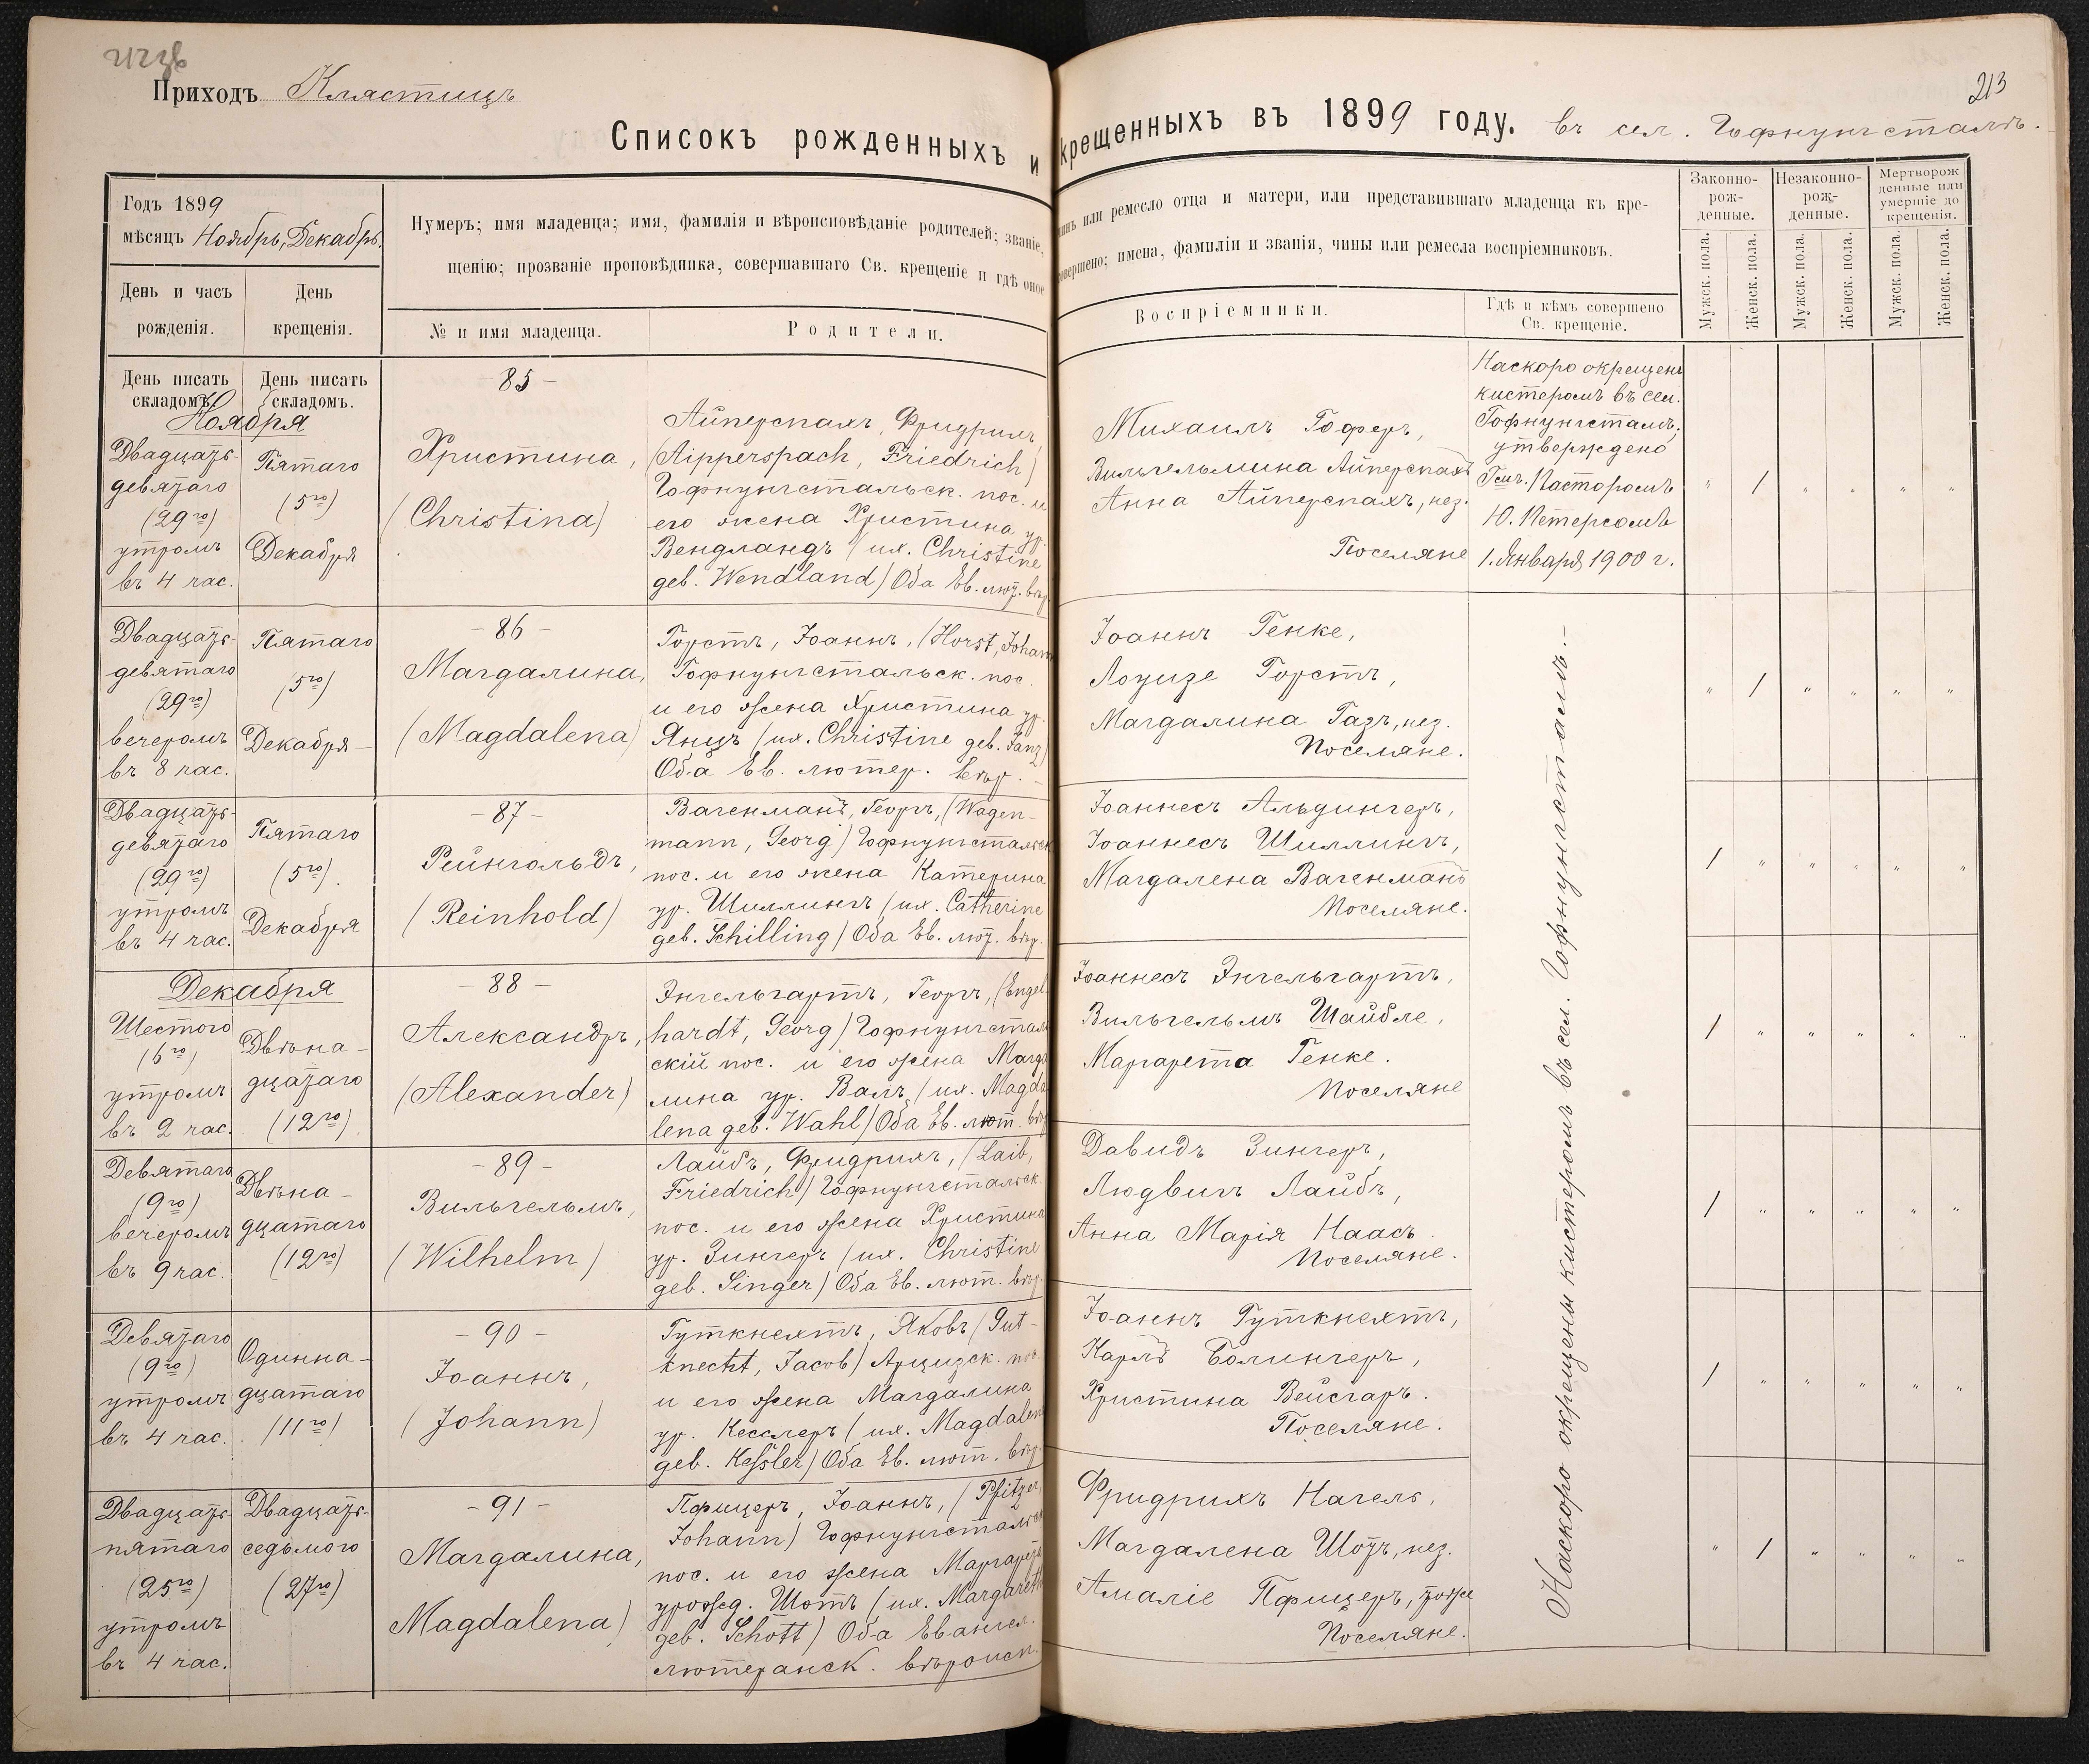 Приходъ Кластицъ
213
Списокъ рожденныхъ и крещенныхъ въ 1899 году. въ сел. Гофнунгсталъ.
Годъ 1899
мѣсяцъ Ноябрь, Декабрь.
День и часъ рожденія.
День крещенія.
Нумеръ; имя младенца; имя, фамилія и вѣроисповѣданіе родителей; званіе,
щенію; прозваніе проповѣдника, совершавшаго Св. крещеніе и гдѣ оное
№ и имя младенца.
Родители.
чинъ или ремесло отца и матери, или представившаго младенца къ кре-
совершено; имена, фамиліи и званія, чины или ремесла воспріемниковъ.
Воспріемники.
Гдѣ и кѣмъ совершено
Св. крещеніе.
Законно-
рож-
денные.
Незаконно-
рож-
денные.
Мертворож
денные или
умершіе до
крещенія.
Мужск. пола.
Женск. пола.
Мужск. пола.
Женск. пола.
Мужск. пола.
Женск. пола.
День писать
складомъ.
День писать
складомъ.
Ноября
Двадцать-
девятаго
(29го)
утромъ
въ 4 час.
Пятаго
(5го)
Декабря
- 85 -
Христина,
(Christina)
Айперспахъ, Фридрихъ,
(Aipperspach, Friedrich)
Гофнунгстальск. пос. и
его жена Христина ур.
Вендландъ (их. Christine
geb. Wendland) Оба Ев. лют. вѣр.
Михаилъ Гоферъ,
Вильгельмина Айперспахъ
Анна Айперспахъ, нез.
Поселяне
Наскоро окрещен
кистеромъ въ сел.
Гофнунгсталъ;
утверждено
Пасторомъ
Ю. Петерсомъ
1. Января 1900 г.
" / " " " "
Двадцать-
девятаго
(29го)
вечеромъ
въ 8 час.
Пятаго
(5го)
Декабря -
- 86 -
Магдалина,
(Magdalena)
Горстъ, Іоаннъ, (Horst, Johann
Гофнунгстальск. пос.
и его жена Христина ур.
Янцъ (их. Christine geb. Janz)
Оба Ев. лютер. вѣр. -
Іоаннъ Генке,
Лоуизе Горстъ,
Магдалина Газъ, нез.
Поселяне.
" / " " " "
Двадцать-
девятаго
(29го)
утромъ
въ 4 час.
Пятаго
(5го).
Декабря
- 87 -
Рейнгольдъ,
(Reinhold)
Вагенманъ, Георгъ, (Wagen-
mann, Georg) Гофнунгстальск
пос. и его жена Катерина
ур. Шиллингъ (их. Catherine
geb. Schilling) Оба Ев. лют. вѣр.
Іоаннесъ Альдингеръ,
Іоаннесъ Шиллингъ,
Магдалена Вагенманъ
Поселяне.
/ " " " " "
Декабря
Шестого
(6го)
утромъ
въ 2 час.
Двѣна-
дцатаго
(12го)
- 88 -
Александръ,
(Alexander)
Энгельгартъ, Георгъ, (Engel-
hardt, Georg) Гофнунгсталь
скій пос. и его жена Магда
лина ур. Валъ (их. Magda
lena geb. Wahl) Оба Ев. лют. вѣр
Іоаннесъ Энгельгартъ,
Вильгельмъ Шайбле,
Маргарета Генке.
Поселяне
/ " " " " "
Девятаго
(9го)
вечеромъ
въ 9 час.
Двѣна-
дцатаго
(12го)
- 89 -
Вильгельмъ,
(Wilhelm)
Лайбъ, Фридрихъ, (Laib,
Friedrich) Гофнунгстальск.
пос. и его жена Христина
ур. Зингеръ (их. Christine
geb. Singer) Оба Ев. лют. вѣр.
Давидъ Зингеръ,
Людвигъ Лайбъ,
Анна Марія Наасъ.
Поселяне.
/ " " " " "
Девятаго
(9го)
утромъ
въ 4 час.
Одинна-
дцатаго
(11го)
- 90 -
Іоаннъ,
(Johann)
Гуткнехтъ, Яковъ (Gut-
knecht, Jacob) Арцизск. пос.
и его жена Магдалина
ур. Кесслеръ (их. Magdalena
geb. Keßler) Оба Ев. лют. вѣр.
Іоаннъ Гуткнехтъ,
Карлъ Болингеръ,
Христина Вейсгаръ.
Поселяне.
/ " " " " "
Двадцать
пятаго
(25го)
утромъ
въ 4 час.
Двадцать-
седьмого
(27го)
- 91 -
Магдалина,
Magdalena)
Пфицеръ, Іоаннъ, (Pfitzer,
Johann) Гофнунгстальск
пос. и его жена Маргарета
урожд. Шотъ (их. Margareth
geb. Schott) Оба Евангел.
лютеранск. вѣроисп.
Фридрихъ Нагель,
Магдалена Шотъ, нез.
Амаліе Пфицеръ, тоже
Поселяне.
" / " " " "
Наскоро окрещены кистеромъ въ сел. Гофнунгсталъ. -